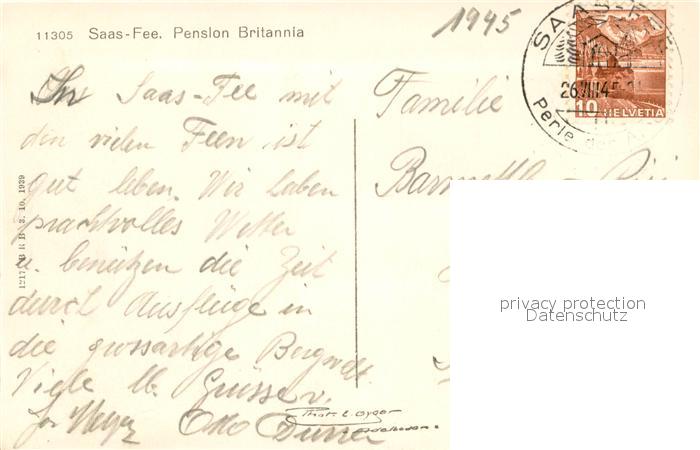 11305 Saas-Fee. Pension Britannia
1945
SAAS-FEE
26.VIII.45
Perle der
10 HELVETIA
In Saas-Fee mit
den vielen Feen ist
gut leben. Wir haben
prachtvolles Wetter
u. benützen die Zeit
durch Ausflüge in
die grossartige Bergwelt.
Viele lb. Grüsse v.
Meyer Otto
Familie
1217 B R B 3. 10. 1939
Phot. E. Gyger
Adelboden.
privacy protection
Datenschutz